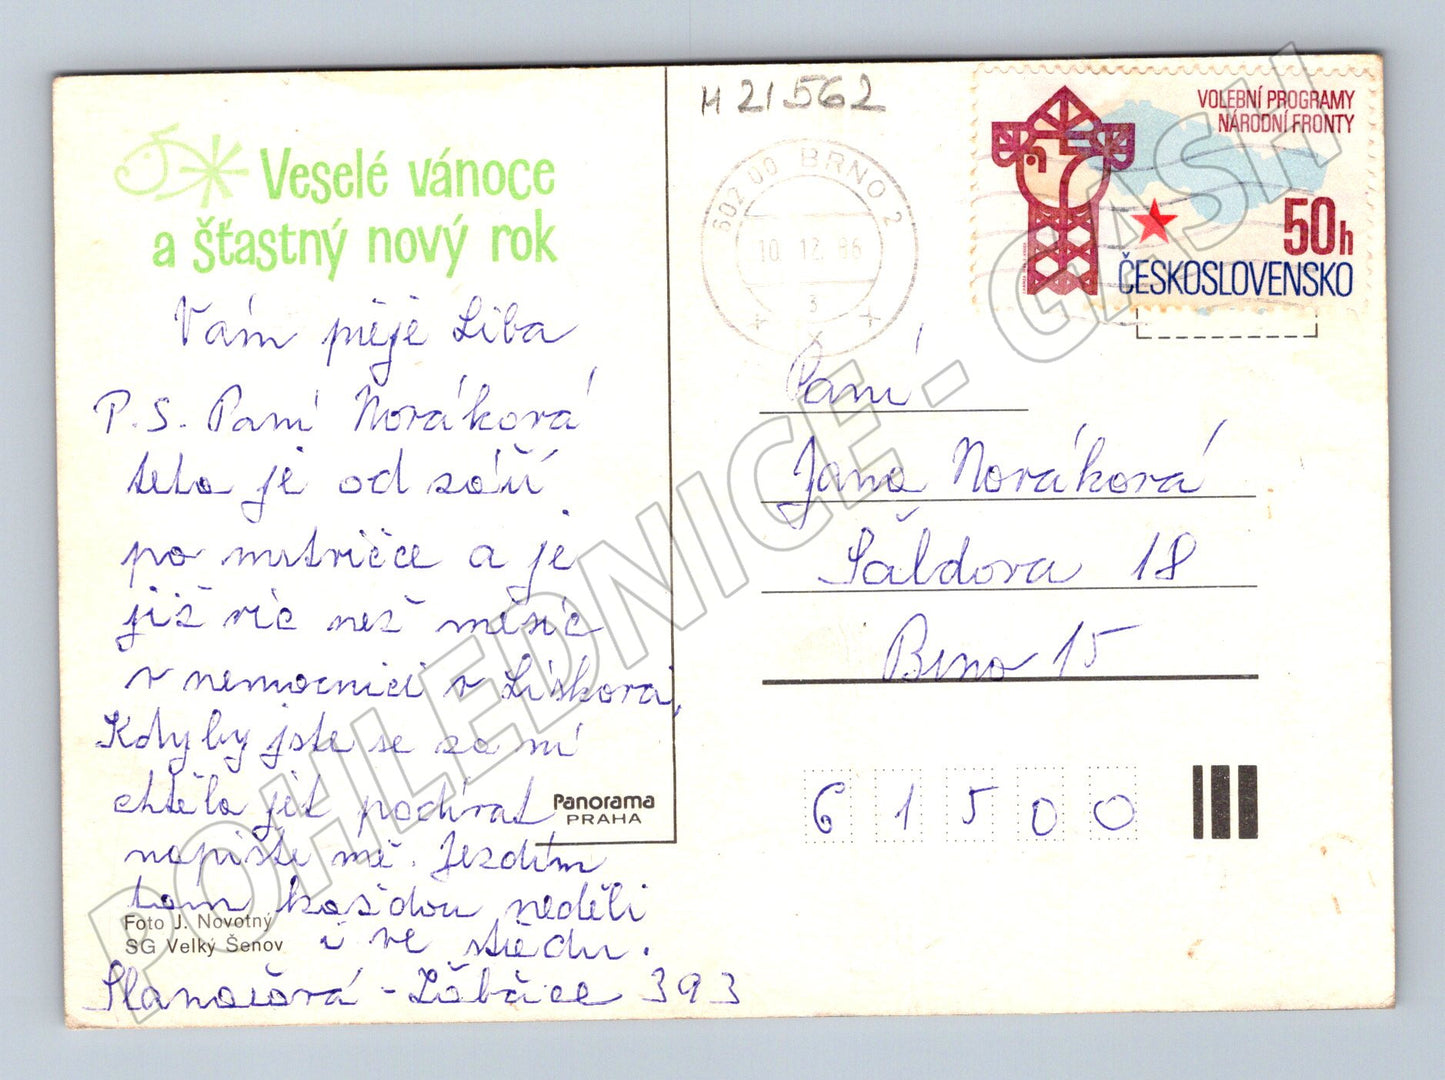 Veselé vánoce
a šťastný nový rok
Vám přeje Liba
P.S. Paní Nováková
teta je od září
po mrtvičce a je
již víc než měsíc
v nemocnici v Lískovci,
Kdyby jste se za ní
chtěla jít podívat
napište mě. Jezdím
tam každou neděli
i ve středu.
393
Panorama
PRAHA
Foto J. Novotný
SG Velký Šenov
H 21562
602 00 BRNO 2
10.12.86
3
VOLEBNÍ PROGRAMY
NÁRODNÍ FRONTY
50h
ČESKOSLOVENSKO
Paní
Jana Nováková
Šaldova 18
Brno 15
61500
POHLEDNICE - GASH